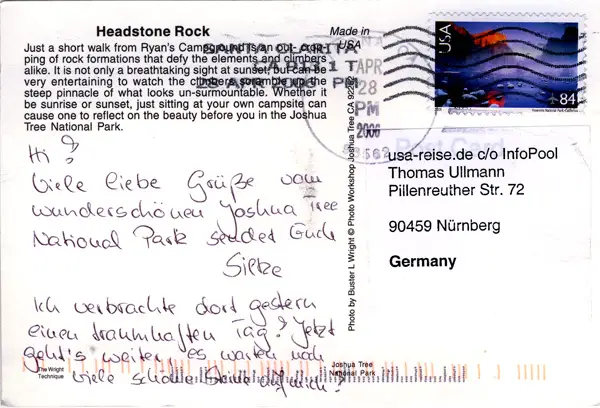 Headstone Rock
Just a short walk from Ryan's Campground is an out- crop-
ping of rock formations that defy the elements and climbers
alike. It is not only a breathtaking sight at sunset, but can be
very entertaining to watch the climbers scramble up the
steep pinnacle of what looks un-surmountable. Whether it
be sunrise or sunset, just sitting at your own campsite can
cause one to reflect on the beauty before you in the Joshua
Tree National Park.
Made in
USA
SANTA CLARITA
CA P&DC 1 T
28 APR 2006 PM
APR
28
PM
2006
USA
84
Hi!
Viele liebe Grüße vom
wunderschönen Joshua Tree
National Park sendet Euch
Silke
Ich verbrachte dort gestern
einen traumhaften Tag! Jetzt
geht's weiter, es warten noch
viele schöne Steine auf mich!
The Wright
Technique
Joshua Tree
National Park
Photo by Buster L Wright © Photo Workshop Joshua Tree CA 92252
Post Card
usa-reise.de c/o InfoPool
Thomas Ullmann
Pillenreuther Str. 72
90459 Nürnberg
Germany